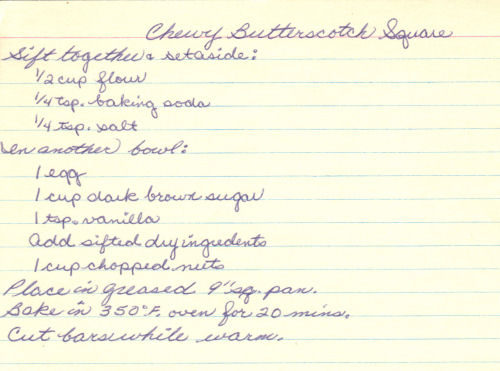 Chewy Butterscotch Square
Sift together & set aside:
1/2 cup flour
1/4 tsp. baking soda
1/4 tsp. salt
In another bowl:
1 egg
1 cup dark brown sugar
1 tsp. vanilla
Add sifted dry ingredents
1 cup chopped nuts
Place in greased 9" sq. pan.
Bake in 350°F. oven for 20 mins.
Cut bars while warm.